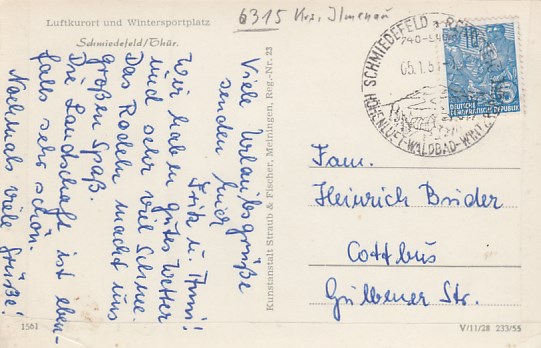 Luftkurort und Wintersportplatz
Schmiedefeld/Thür.
6315 Krs. Ilmenau
Viele Urlaubsgrüße
senden Euch
Fritz u. Anni!
Wir haben gutes Wetter
und sehr viel Schnee.
Das Rodeln macht uns
großen Spaß.
Die Landschaft ist eben-
falls sehr schön.
Nochmals viele Grüße!
Kunstanstalt Straub & Fischer, Meiningen, Reg.-Nr. 23
SCHMIEDEFELD a RENNSTEIG
740-
05.1.5
HÖHENLUFT-WALDBAD-WINTERSPORT
DEUTSCHE
DEMOKRATISCHE REPUBLIK
Fam.
Heinrich Bruder
Cottbus
Gulbener Str.
1561
V/11/28 233/55